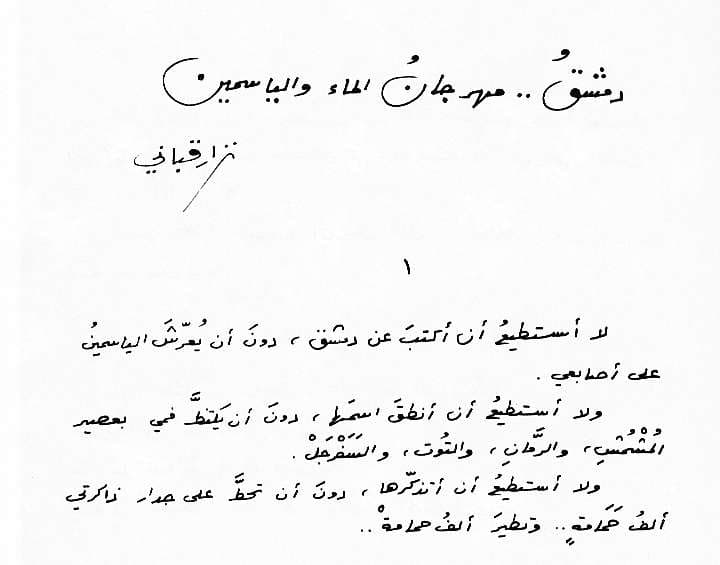 دمشقُ .. مهرجانُ الماء والياسمين
نزار قباني
١
لا أستطيعُ أن أكتبَ عن دمشق ، دونَ أن يُعرّشَ الياسمينُ
على أصابعي .
ولا أستطيعُ أن أنطقَ اسمَها ، دونَ أن يكتظَّ فمي بعصير
المُشْمُشِ ، والرَّمانِ ، والتُوت ، والسَفَرْجَلْ .
ولا أستطيعُ أن أتذكّرها ، دونَ أن تحطَّ على جدار ذاكرتي
ألفُ حَمَامةٍ .. وتطيرَ ألفُ حمامةْ ..